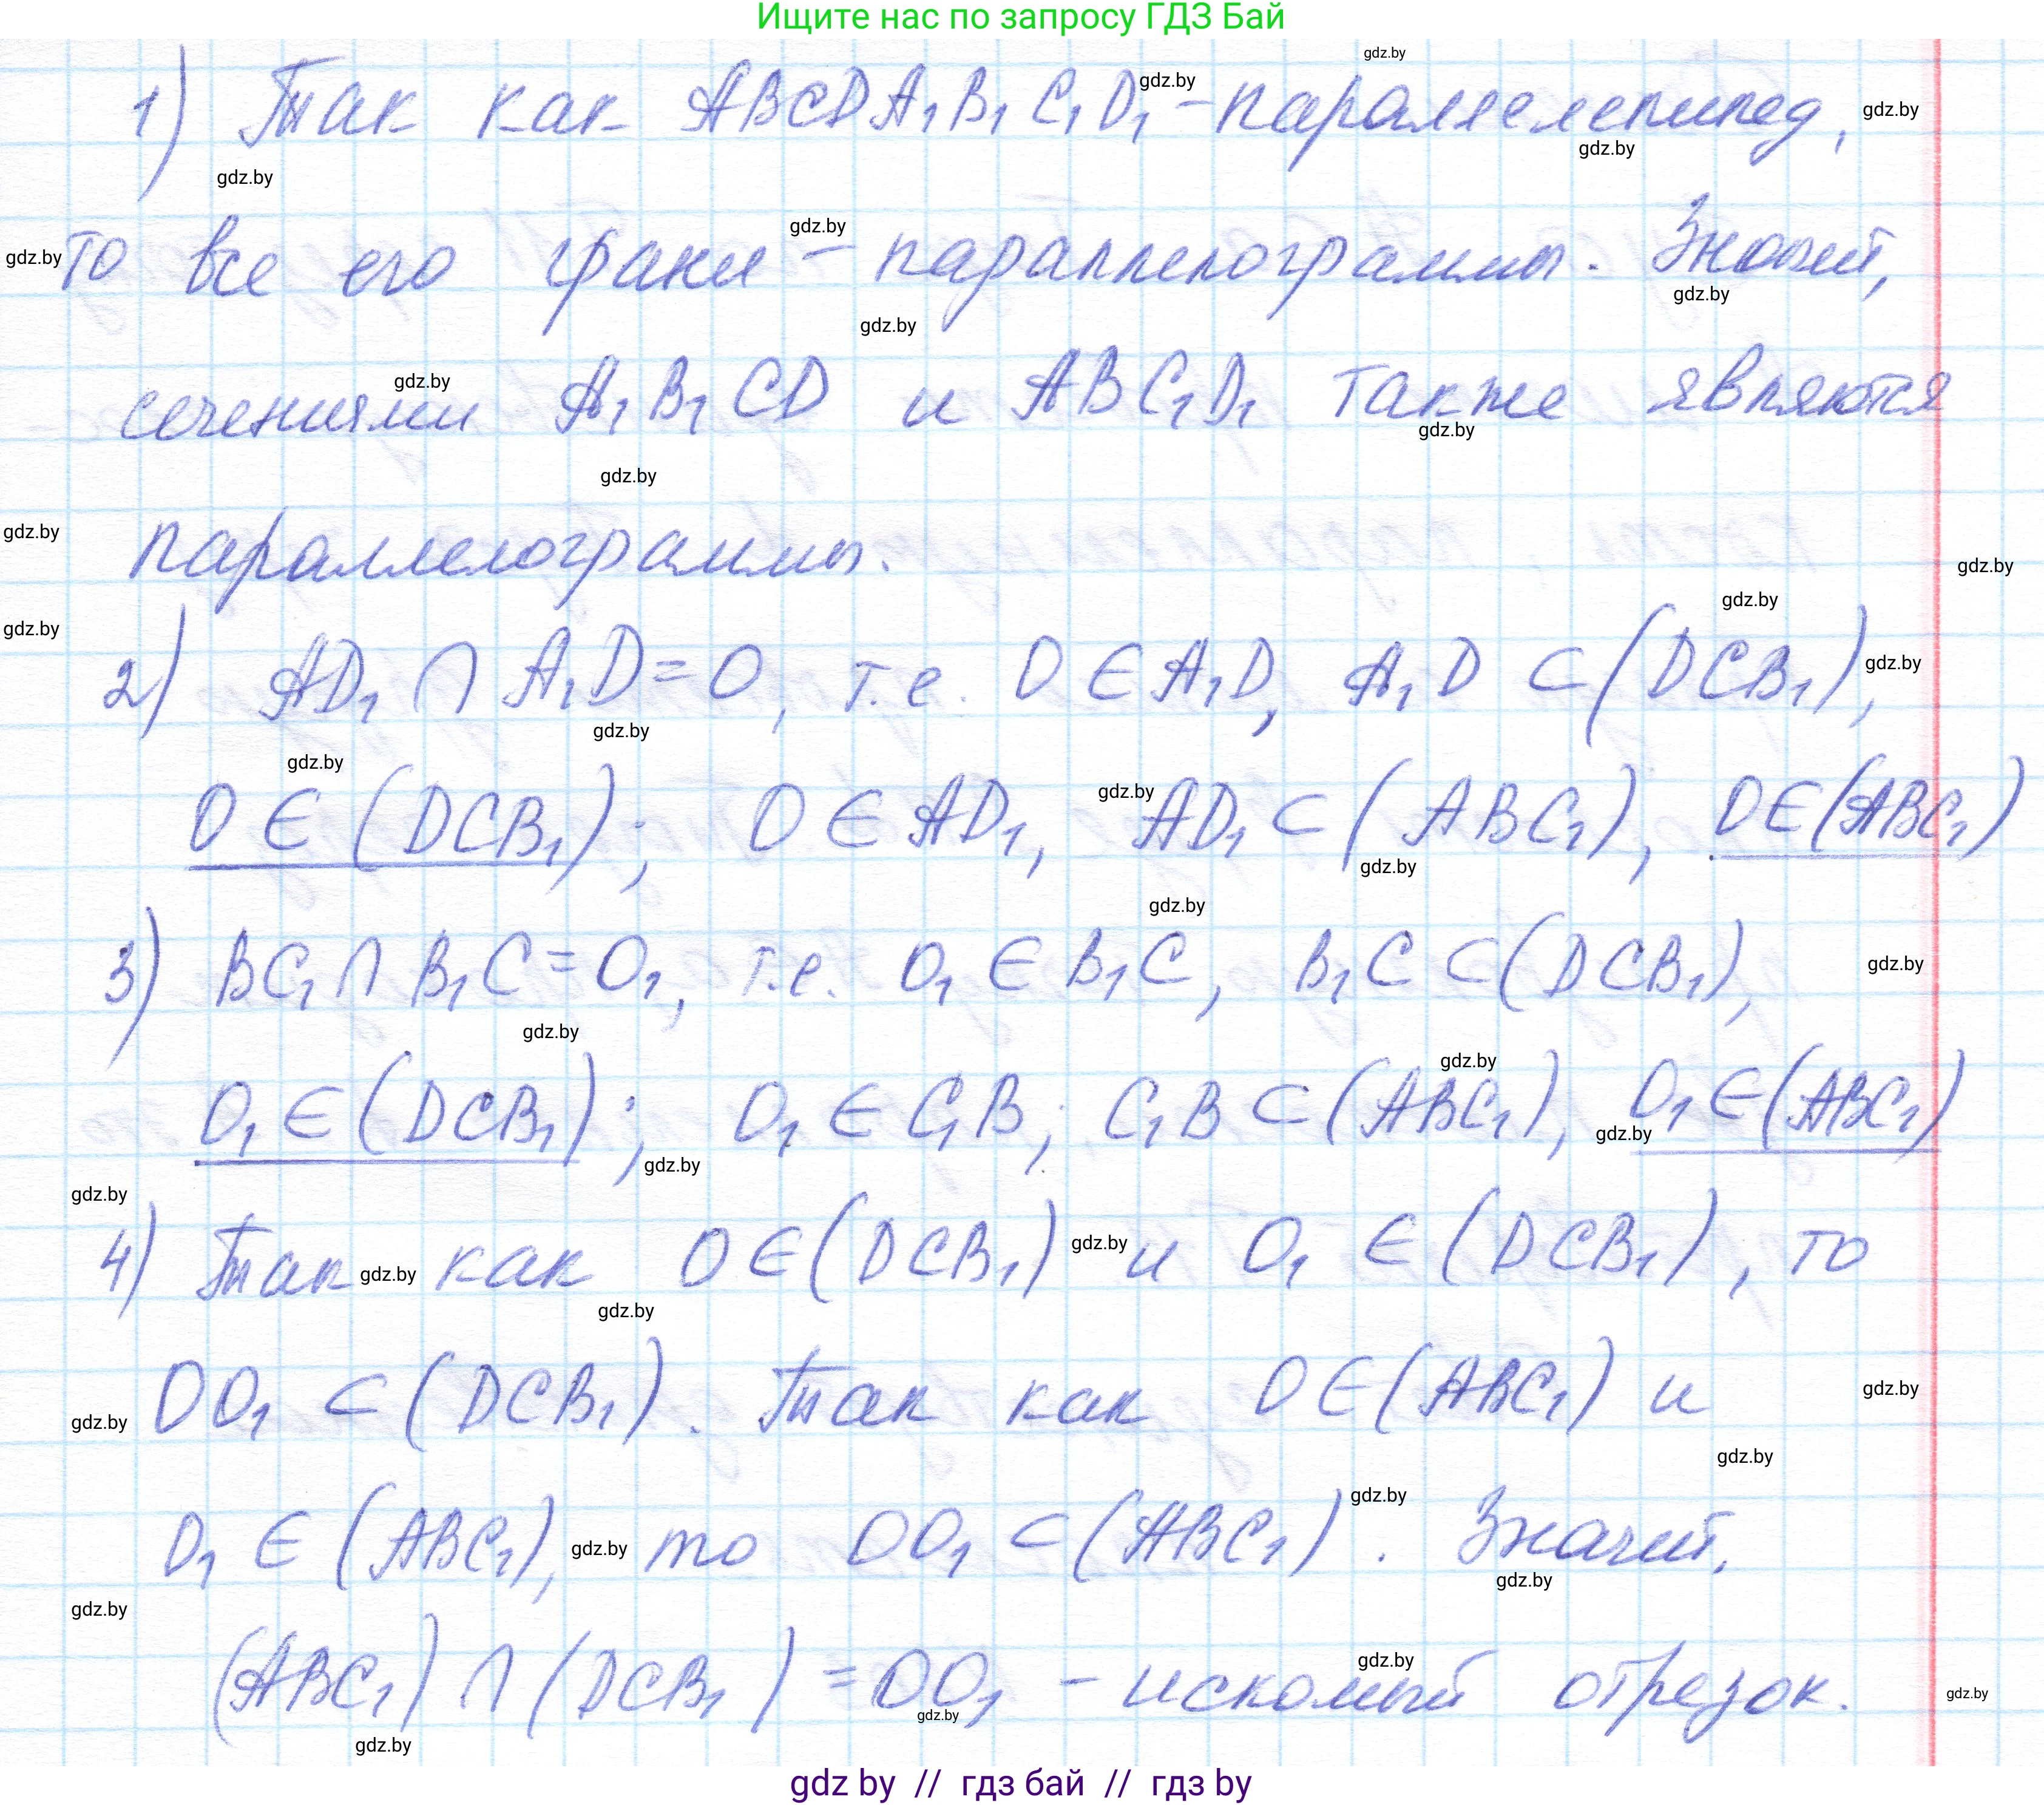 Ищите нас по запросу ГДЗ Бай
gdz.by
1) Так как ABCDA₁B₁C₁D₁ - параллелепипед,
то все его грани - параллелограммы. Значит,
сечениями A₁B₁CD и ABC₁D₁ также являются
параллелограммы.
2) AD₁ ∩ A₁D = O, т.е. O ∈ A₁D, A₁D ⊂ (DCB₁),
O ∈ (DCB₁); O ∈ AD₁, AD₁ ⊂ (ABC₁), O ∈ (ABC₁)
3) BC₁ ∩ B₁C = O₁, т.е. O₁ ∈ B₁C, B₁C ⊂ (DCB₁),
O₁ ∈ (DCB₁); O₁ ∈ C₁B; C₁B ⊂ (ABC₁), O₁ ∈ (ABC₁)
4) Так как O ∈ (DCB₁) и O₁ ∈ (DCB₁), то
OO₁ ⊂ (DCB₁). Так как O ∈ (ABC₁) и
O₁ ∈ (ABC₁), то OO₁ ⊂ (ABC₁). Значит,
(ABC₁) ∩ (DCB₁) = OO₁ - искомый отрезок.
gdz by // гдз бай // гдз by